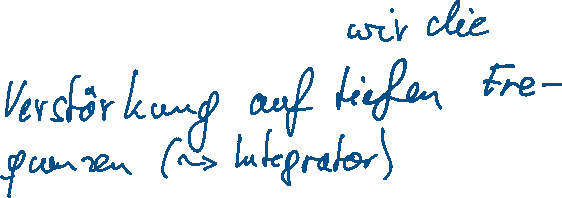 wir die
Verstärkung auf tiefen Fre-
quenzen (↝ Integrator)